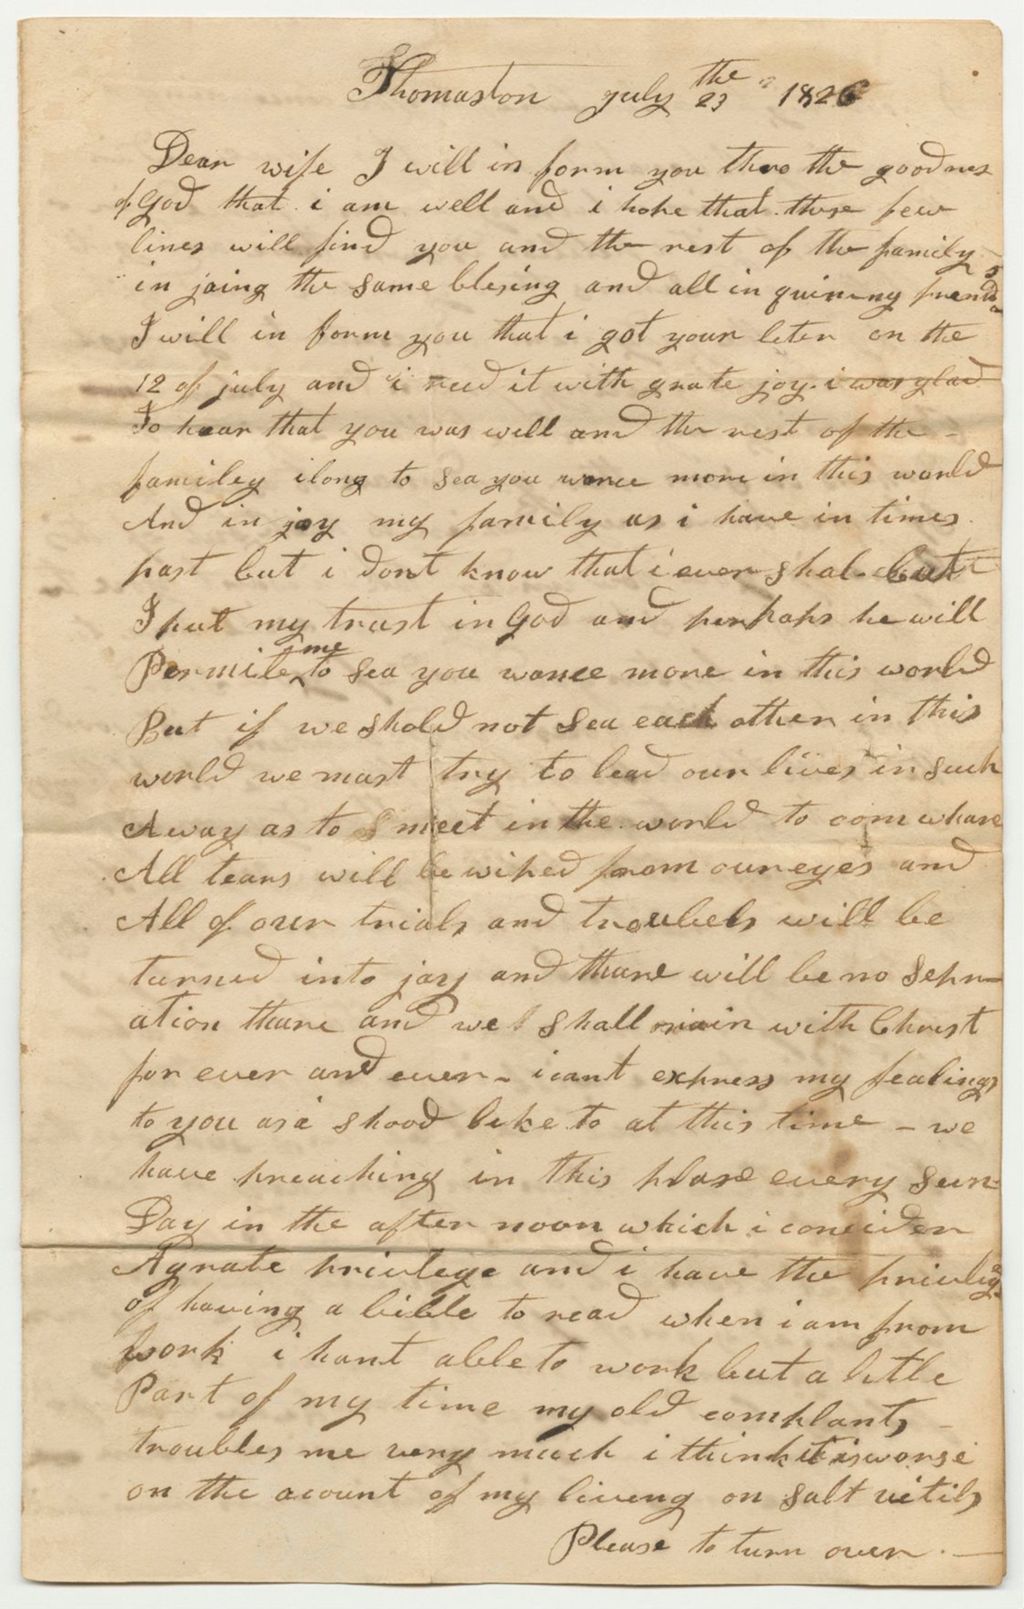 Thomaston july the 23 1826
Dear wife I will in form you thro the goodness
of God that i am well and i hope that these few
lines will find you and the rest of the family
in joing the same blesing and all in quirinny friends
I will in form you that i got your leter on the
12 of july and i reed it with grate joy i was glad
To hear that you was well and the rest of the
familey i long to sea you wonce more in this world
And in joy my family as i have in times
past but i dont know that i ever shal but
I put my trust in God and perhaps he will
Permite me to sea you wonce more in this world
But if we shold not sea each other in this
world we must try to lead our lives in such
A way as to meet in the world to com whare
All tears will be wiped from our eyes and
All of our trials and troubels will be
turned into joy and thare will be no sepr-
ation thare and we shall with Christ
for ever and ever - i cant express my fealings
to you as i shood like to at this time - we
have preaching in this plase every sun-
Day in the after noon which i concider
A grate privlege and i have the privleg
of having a bible to read when i am from
work i hant able to work but a litle
Part of my time my old complants
troubles me very much i think it is worse
on the acount of my living on salt vitils
Please to turn over. —